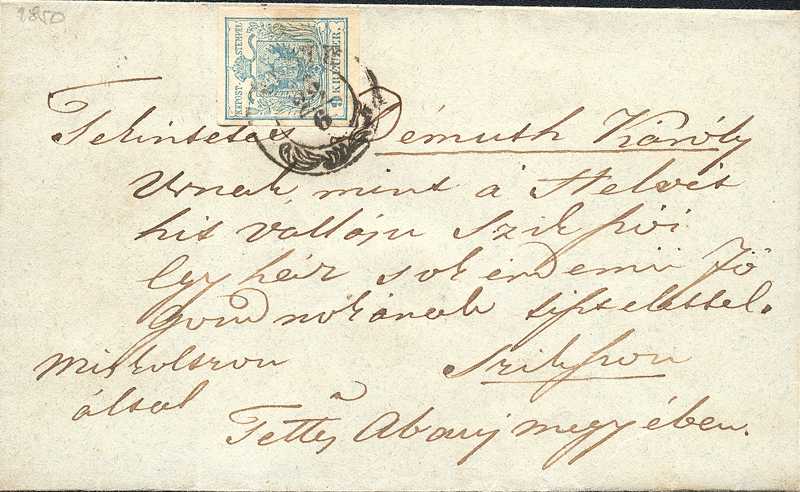 1850
KKPOST-STEMPEL
9 KREUZER.
22
6
Tekintetes Démuth Károly
Urnak mint á Helvét
hit vallásu Szikszói
Egyház sok érdemü Fő
gond nokának tisztelettel.
Miskolszon Szikszon
által
Tettes Abauj megyében.